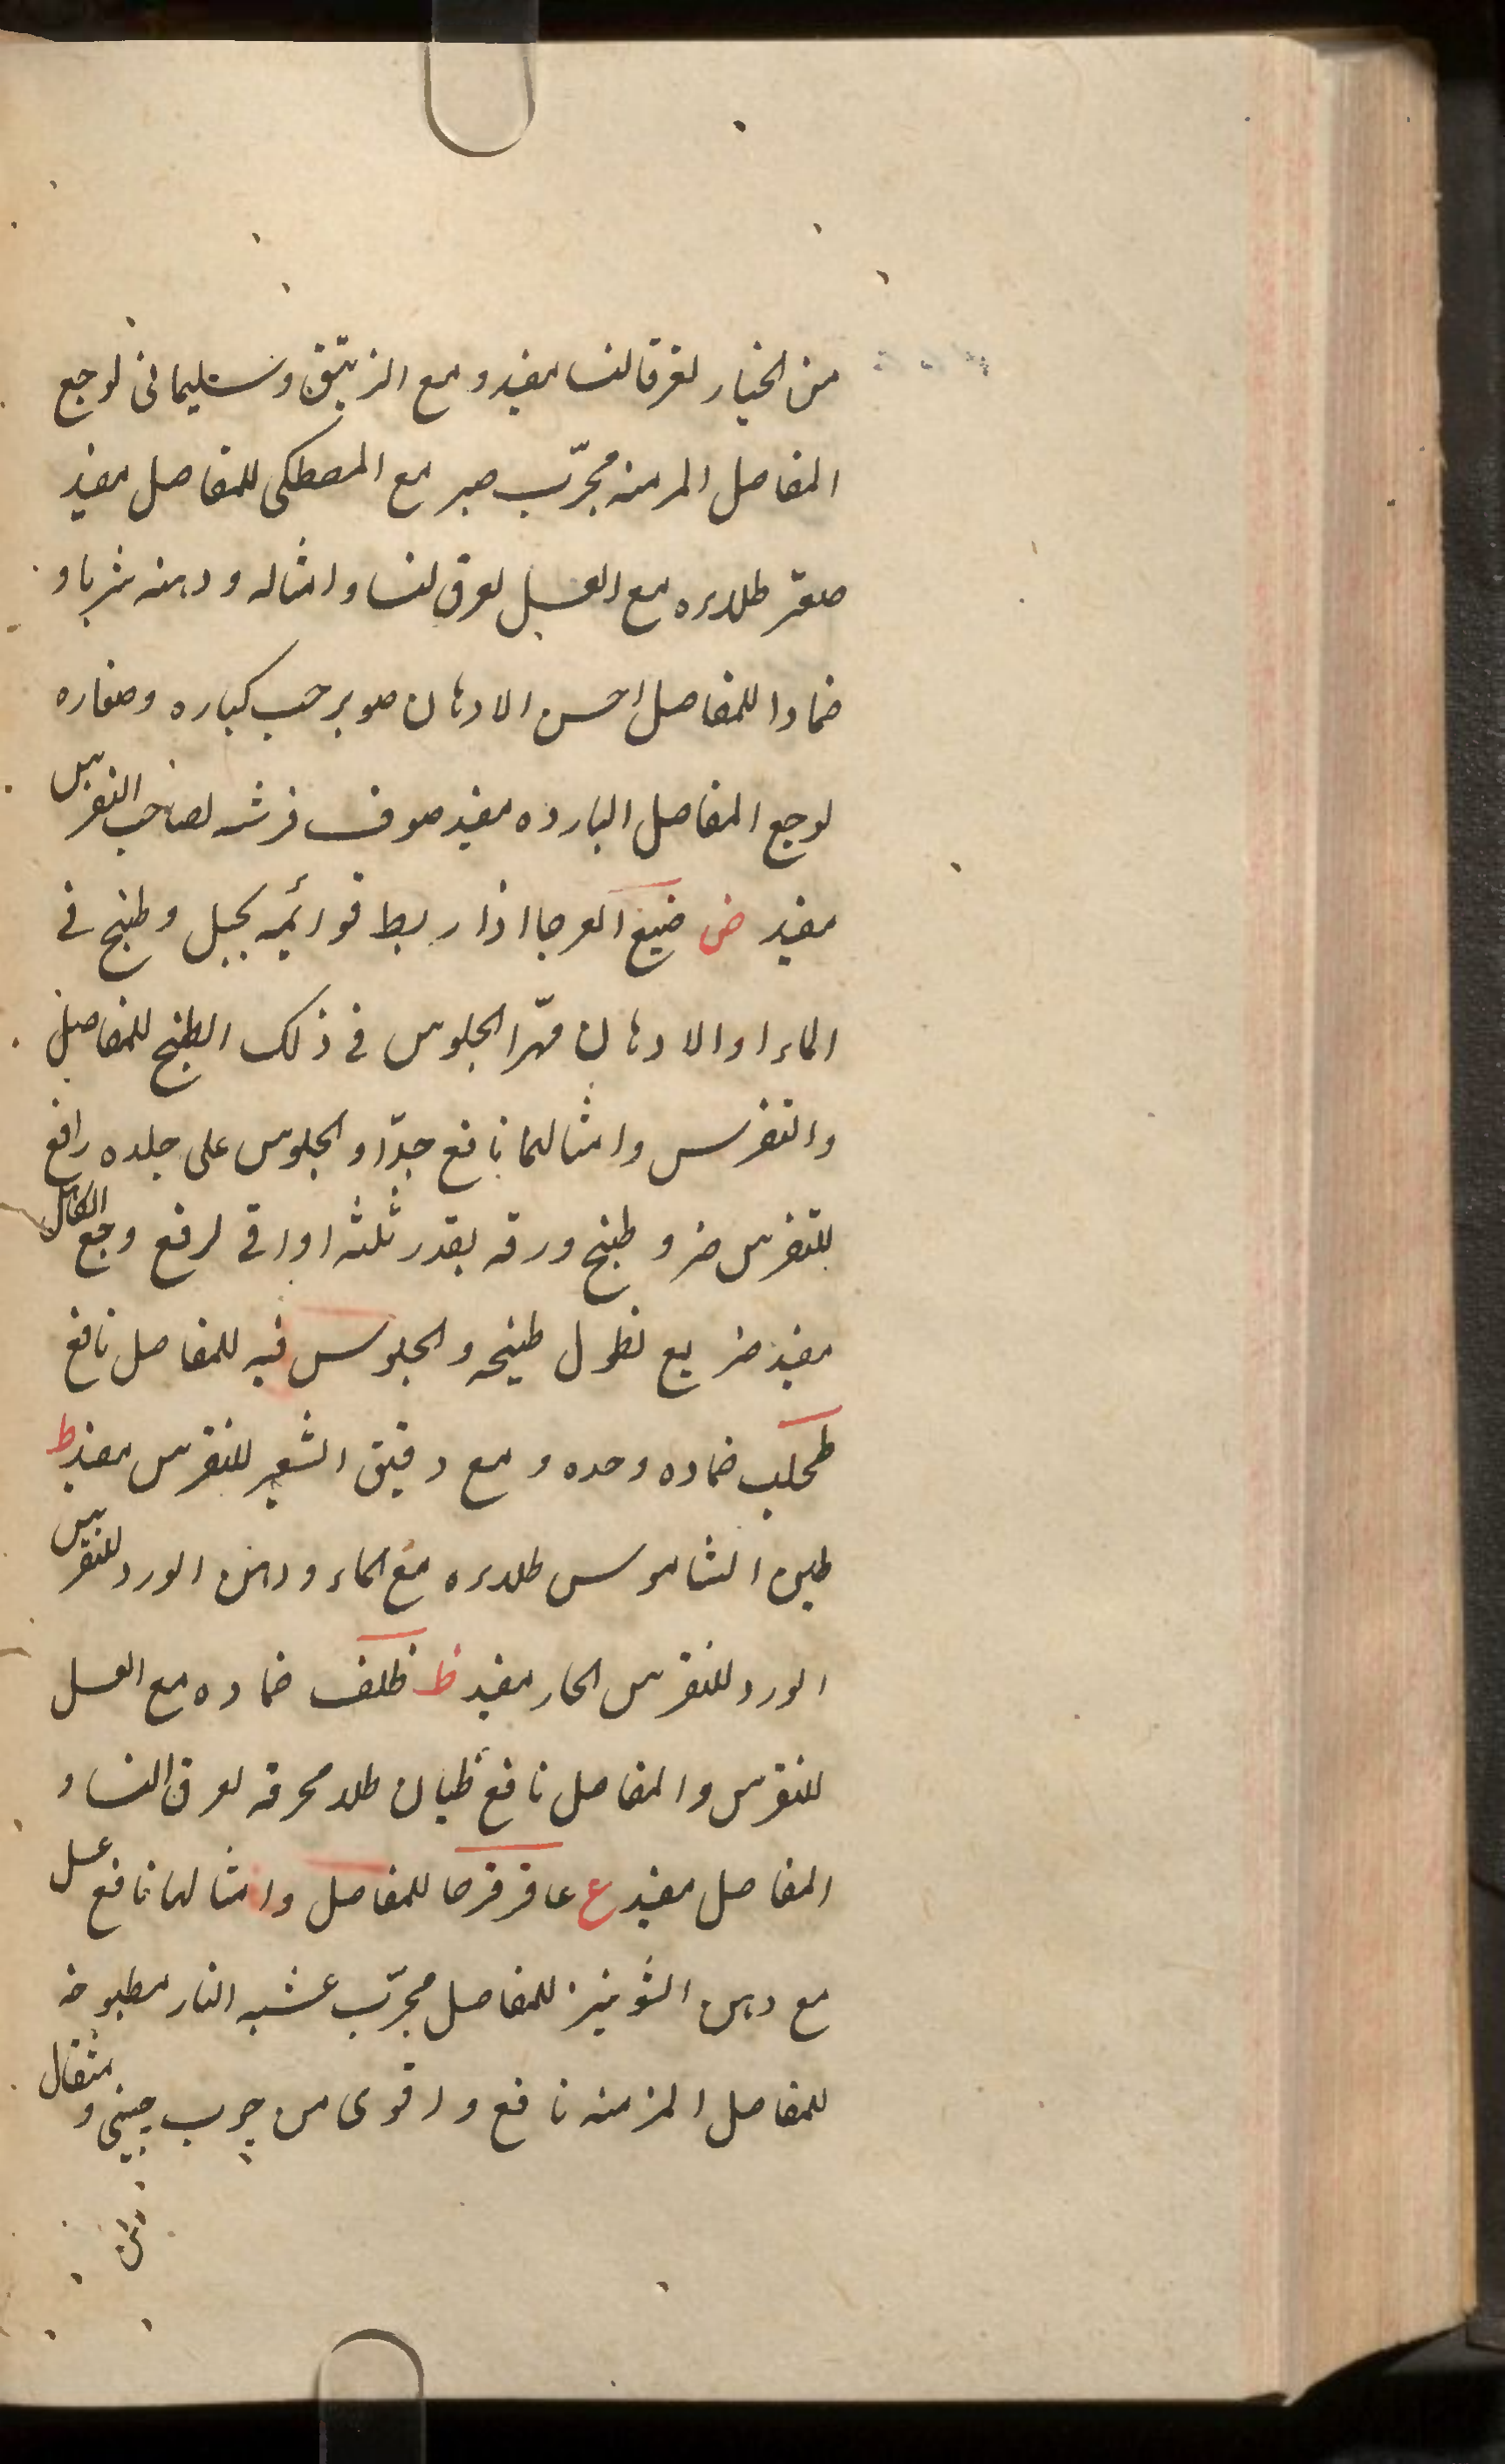 من الخيار لعرق النسا مفيد و مع الزيبق و سليمانى لوجع
المفاصل المزمنه مجرّب صبر مع المصطكى للمفاصل مفيد
صعتر طلاءه مع العسل لعرق النسا و امثاله و دهنه شربا و
ضمادا للمفاصل احسن الادهان صنوبر حب كباره و صغاره
لوجع المفاصل البارده مفيد صوف فرشه لصاحب النقرس
مفيد ض ضبع العرجا اذا ربط قوائمه بحبل و طبخ فى
الماء او الادهان مهرّا الجلوس فى ذلك الطبخ للمفاصل
و النقرس و امثالها نافع جدّا و الجلوس على جلده رافع
للنقرس ضرو طبخ ورقه بقدر ثلثه اواقى لرفع وجع
مفيد ضريع نطول طبخه و الجلوس فيه للمفاصل نافع
طحلب ضماده وحده و مع دقيق الشعير للنقرس مفيد ط
طين الشاموس طلاءه مع الماء و دهن الورد للنقرس
الورد للنقرس الحار مفيد ظ ظلف ضماده مع العسل
للنقرس و المفاصل نافع ظيان طلاء محرقه لعرق النسا و
المفاصل مفيد ع عاقرقرحا للمفاصل و امثالها نافع عسل
مع دهن الشونيز للمفاصل مجرّب عشبه النار مطبوخه
للمفاصل المزمنه نافع و اقوى من چوب چينى و مثقال